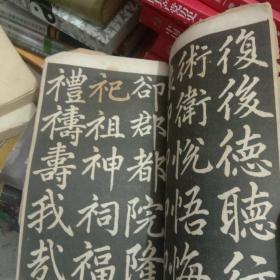 復後徳聽行
術衛悅悟悔
卻郡都院隆
祀祖神祠福
禮禱壽我哉